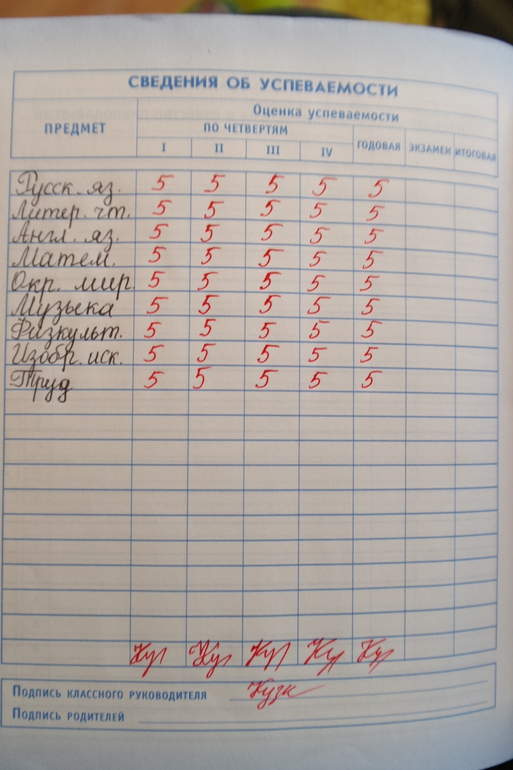 СВЕДЕНИЯ ОБ УСПЕВАЕМОСТИ
ПРЕДМЕТ
Оценка успеваемости
ПО ЧЕТВЕРТЯМ
ГОДОВАЯ ЭКЗАМЕН ИТОГОВАЯ
I II III IV
Русск. яз. 5 5 5 5 5
Литер. чт. 5 5 5 5 5
Англ. яз. 5 5 5 5 5
Матем. 5 5 5 5 5
Окр. мир 5 5 5 5 5
Музыка 5 5 5 5 5
Физкульт. 5 5 5 5 5
Изобр. иск. 5 5 5 5 5
Труд 5 5 5 5 5
Подпись классного руководителя
Подпись родителей